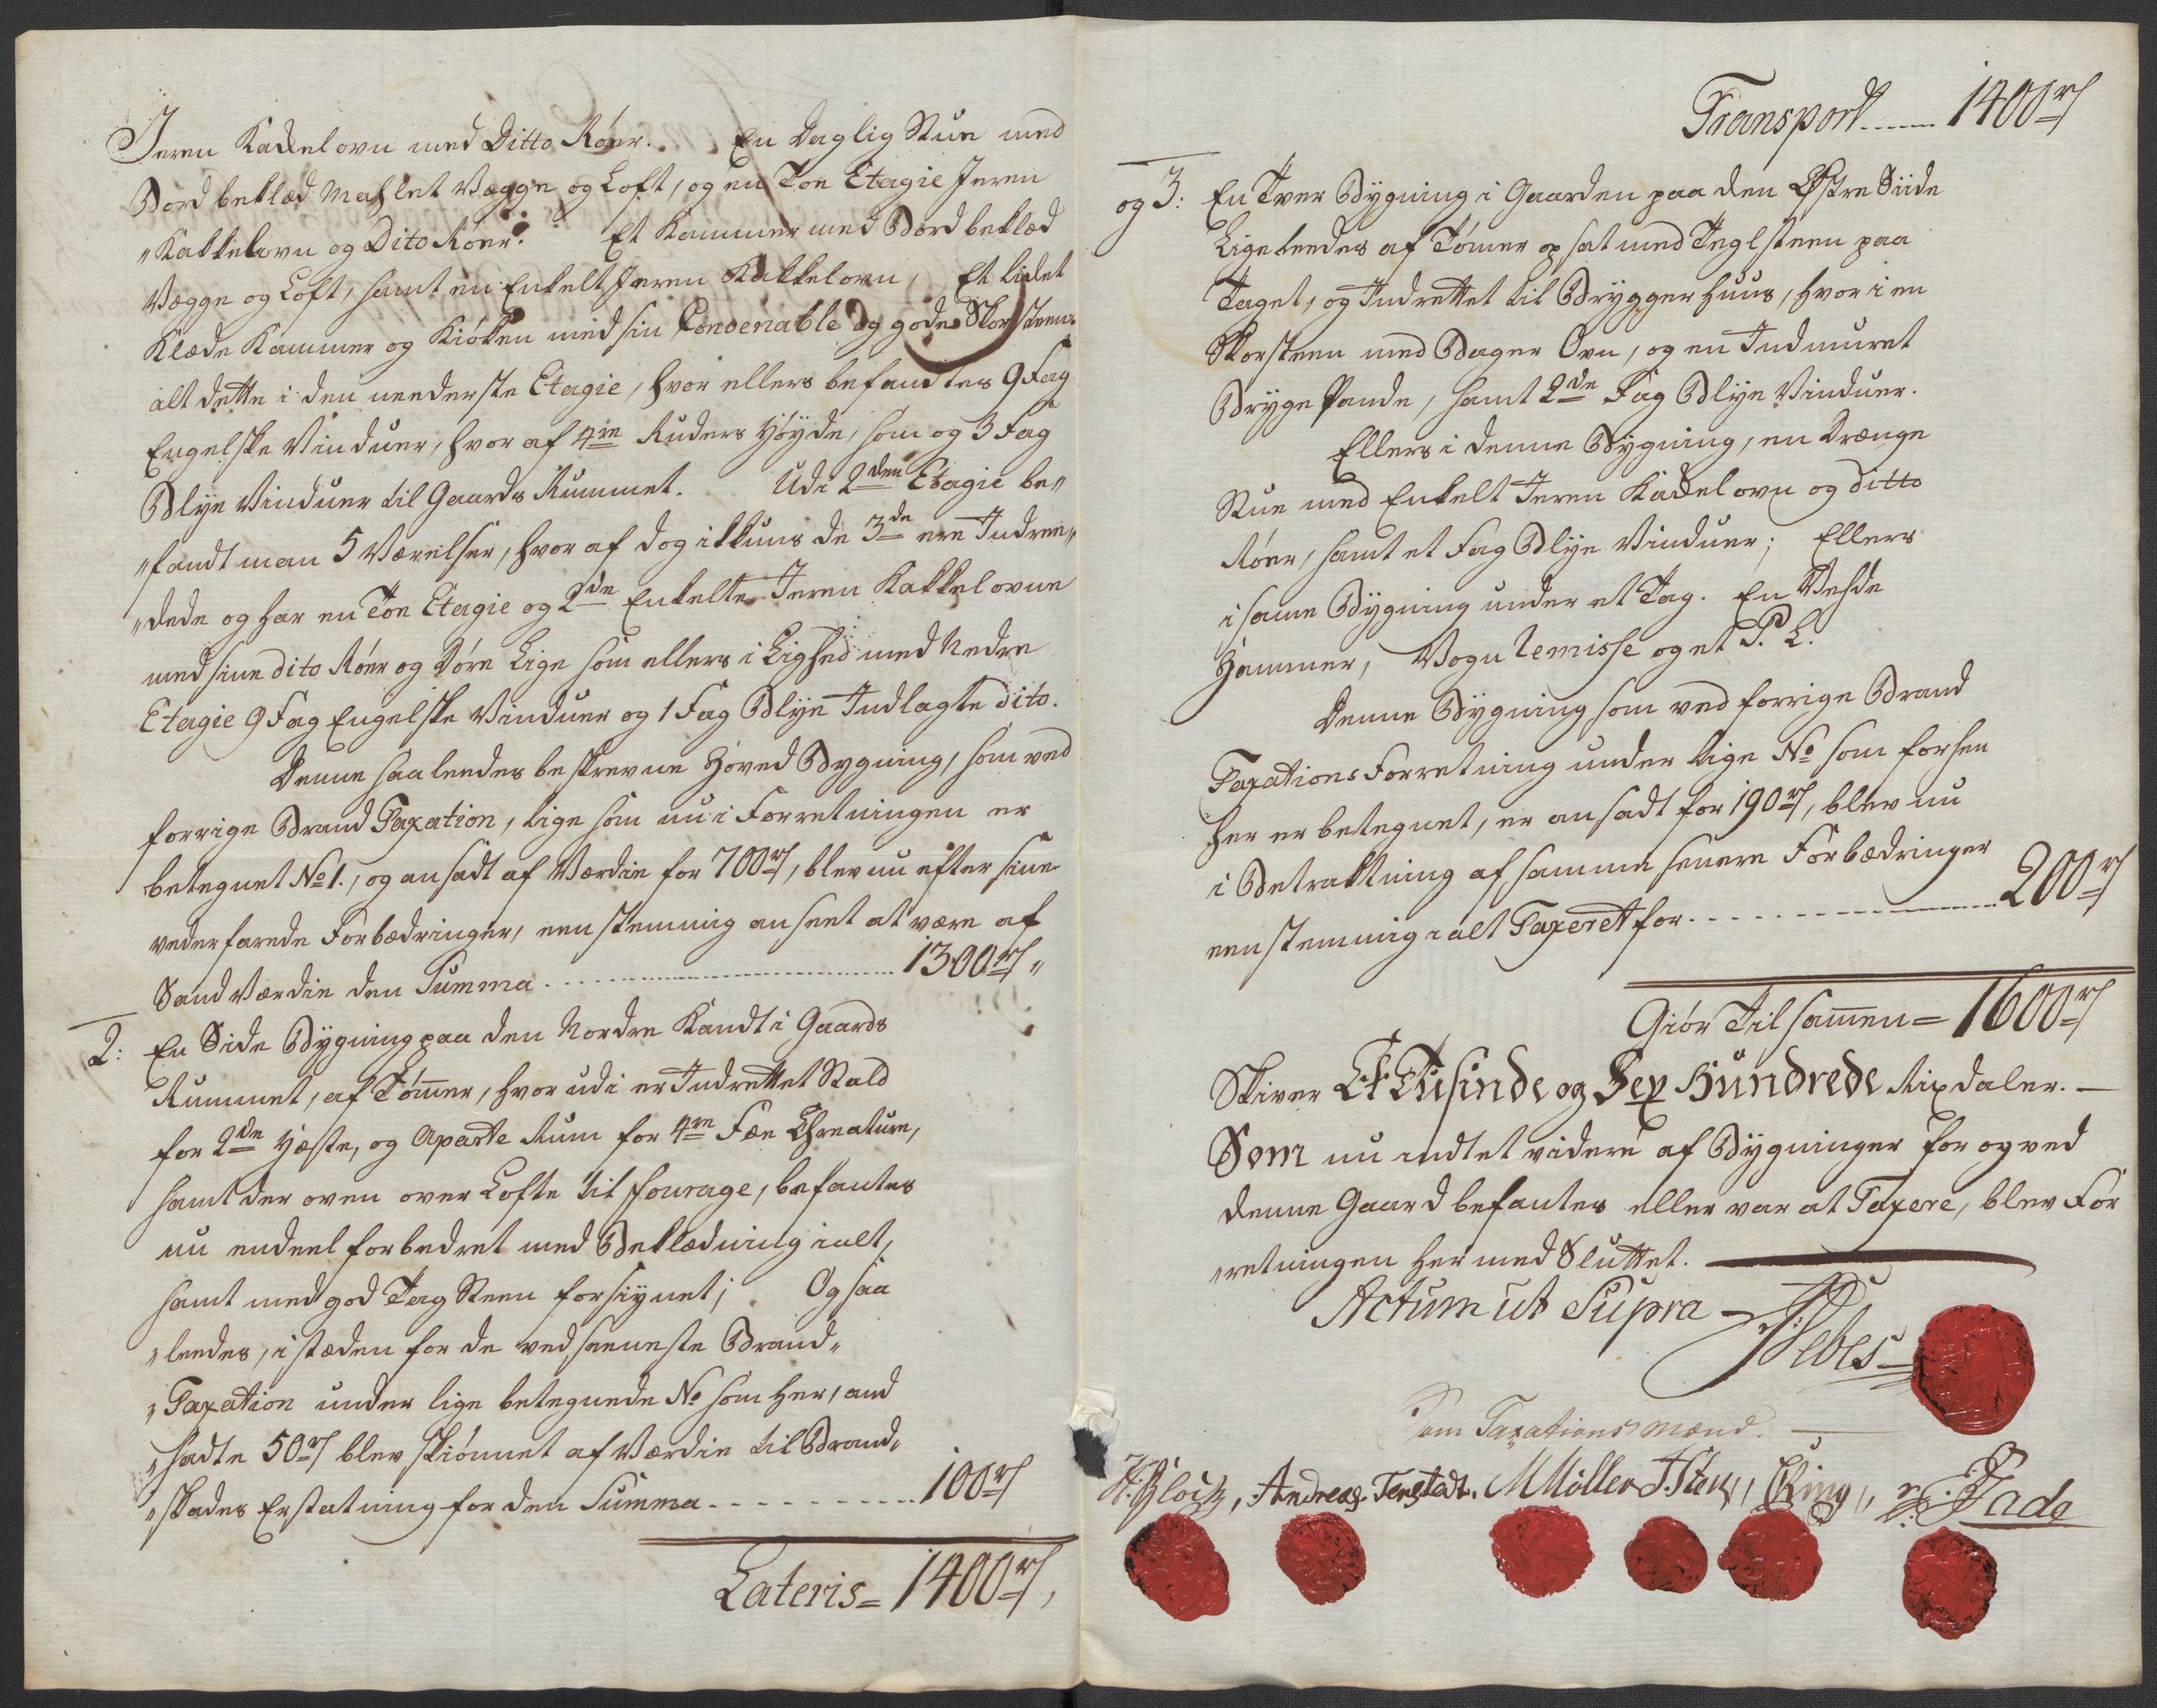 Jeren Kackelovn med Ditto Röer. En Daglig Stue med
Bord beklæd Mahlet Vægge og Loft, og en Toe Etagie Jeren
"Kakkelovn og Dito Röer. Et Kammer med Bord beklæd
Vægge og Loft, samt en Enkelt Jeren Kakkelovn, Et lidet
Klæde Kammer og Kiöken med sin Convenable og gode Skorsteen.
alt dette i den neederste Etagie, hvor ellers befandtes 9 Fag
Engelske Vinduer, hvor af 4re Ruders Höyde, som og 3 Fag
Blye Vinduer til Gaards Rummet. Udi 2den Etagie be"
"fandt man 5 Værelser, hvor af dog ikkuns de 3de ere Indree"
"dede og har en Toe Etagie og 2de Enkelte Jeren Kakkelovne
med sine dito Röer og Döre Lige som ellers i Lighed med Nedre
Etagie 9 Fag Engelske Vinduer og 1 Fag Blye Indlagte dito.
Denne saaleedes beskrevne Hoved Bygning, som ved
forrige Brand Taxation, lige som nu i Forretningen er
betegnet No 1., og ansadt af Værdie for 700 rd, blev nu efter sine
vederfarede Forbædringer, eenstemmig anseet at være af
Sand Værdie den Summa . . . . . . 1300 rd "
2: En Side Bygning paa den Nordre Kandt i Gaards
Rummet, af Tömer, hvor udi er Indrettet Stald
for 2de Heste, og Aparte Rum for 4re Fæe Chreature,
samt der oven over Lofte til Fourage, befantes
nu endeel forbedret med Beklædning ialt,
samt med god Tag Steen forsiynet; Og saa
"leedes, i stæden for de ved seeneste Brand"
"Taxation under lige betegnede No som her, and
"sadte 50 rd blev skiönnet af Værdie til Brand"
"skades Erstatning for den Summa . . . . . . 100 rd
Lateris = 1400 rd,
Transport ...... 1400 rd
og 3: En Tver Bygning i Gaarden paa den Østre Siide
Ligeleedes af Tömer op sat med Teglsteen paa
Taget, og Indrettet til Brygger huus, hvor i en
Skorsteen med Bager Ovn, og en Indmuret
Brygge Pande, samt 2de Fag Blye Vinduer.
Ellers i denne Bygning, en Drænge
Stue med Enkelt Jeren Kackelovn og ditto
Röer, samt et Fag Blye Vinduer; Ellers
i same Bygning under et Tag. En Vehde
Hammer, Vogn Remisse og et P. L.
Denne Bygning som ved forrige Brand
Taxations Forretning under lige No som forhen
her er betegnet, er ansadt for 190 rd, blev nu
i Betraktning af samme senere Forbædringer
eenstemmig ialt Taxeret for . . . . . . 200 rd
Giör Tilsamen = 1600 rd
Skiver Et Tusinde og Sex Hundrede Rixdaler. —
Som nu indtet videre af Bygninger for og ved
denne Gaard befantes eller var at Taxere, blev For
"retningen her med Sluttet.
Actum ut Supra —
Som Taxations Mænd. —
Andreas Tenstedt. M Möller